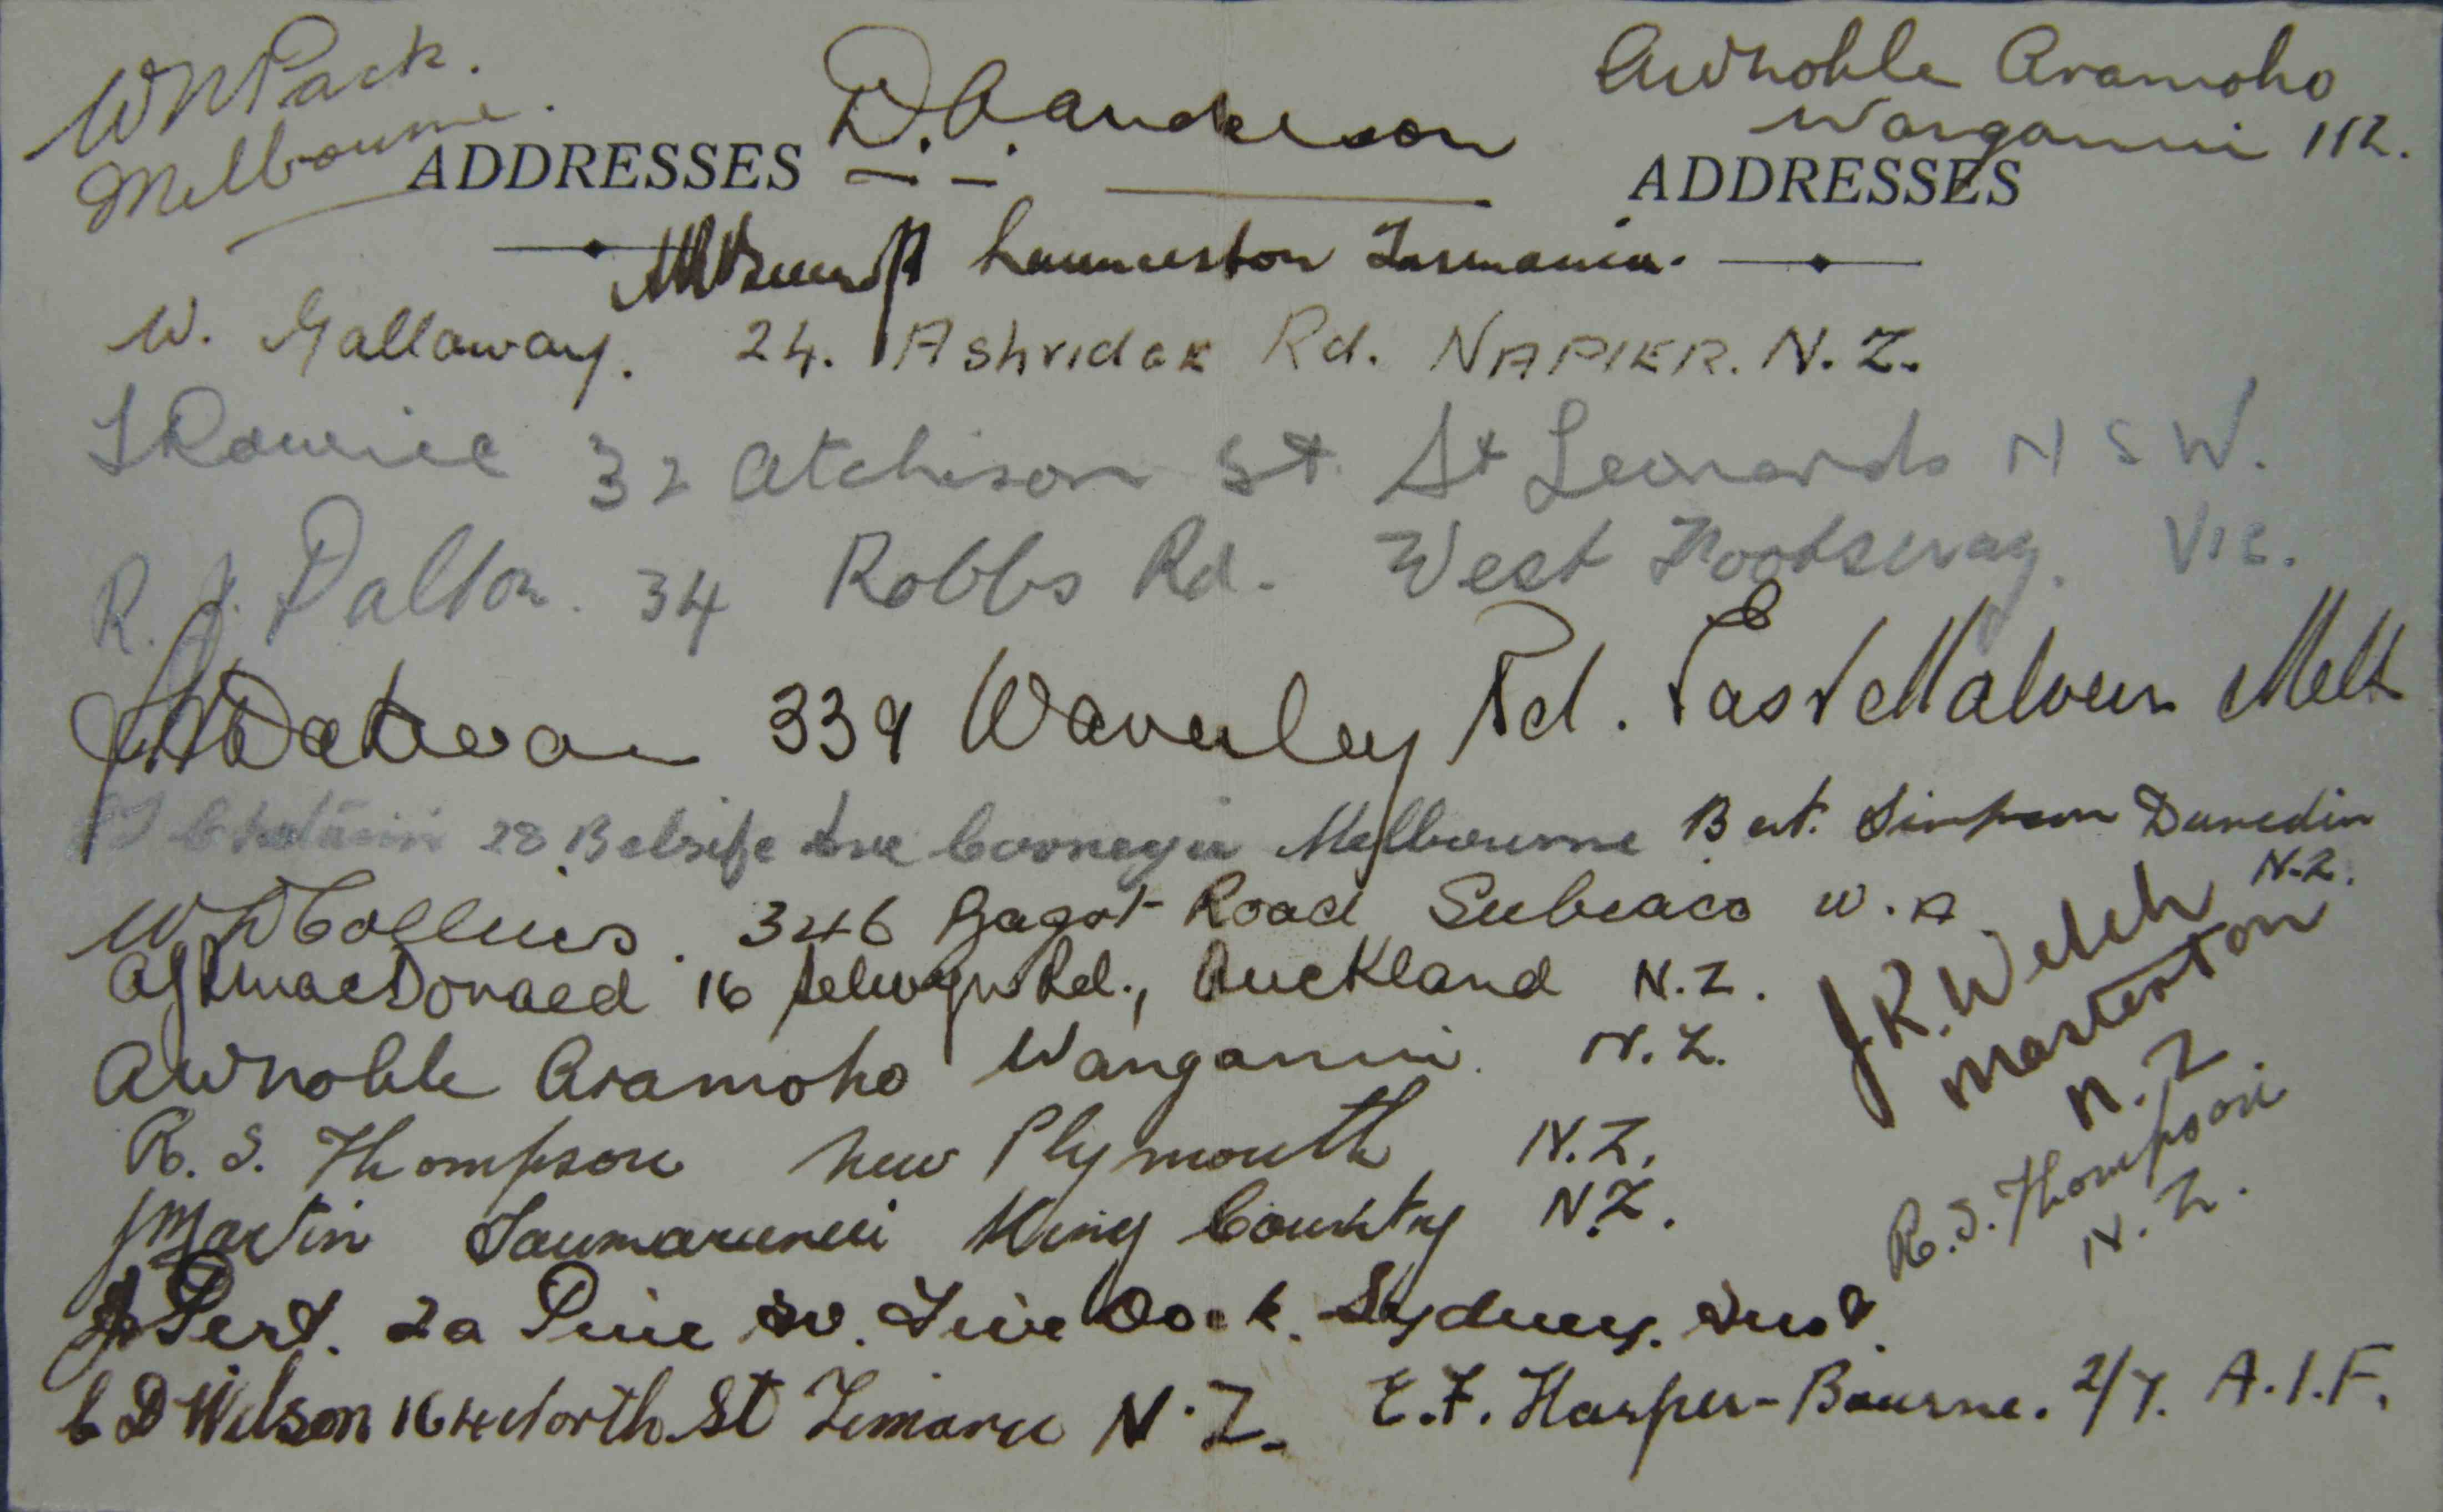 W N Pack.
Melbourne.
D. A. Anderson
AW Noble Aramoho
Wanganui NZ.
ADDRESSES
ADDRESSES
Launceston Tasmania.
W. Gallaway. 24. Ashridge Rd. NAPIER. N.Z.
32 Atchison St St Leonards N S W.
R. J. Dalton. 34 Robbs Rd. West Footscray. Vic.
339 Waverley Rd. East Malvern Melb
28 Belsize Ave Carnegie Melbourne
Bert. Simpson Dunedin
N.Z.
W D Collins. 346 Bagot Road Subiaco W.A
MacDonald 16 Selwyn Rd., Auckland N.Z.
J.R. Welch
Masterton
N.Z
AW Noble Aramoho Wanganui. N.Z.
R. S. Thompson New Plymouth N.Z.
R. S. Thompson
N.Z.
J Martin Taumarunui King Country N.Z.
J Pert. 2a Pine Av. Five Dock. Sydney. Aust.
C D Wilson 164 North St Timaru N.Z.
E.F. Harper-Bourne. 2/7. A.I.F.